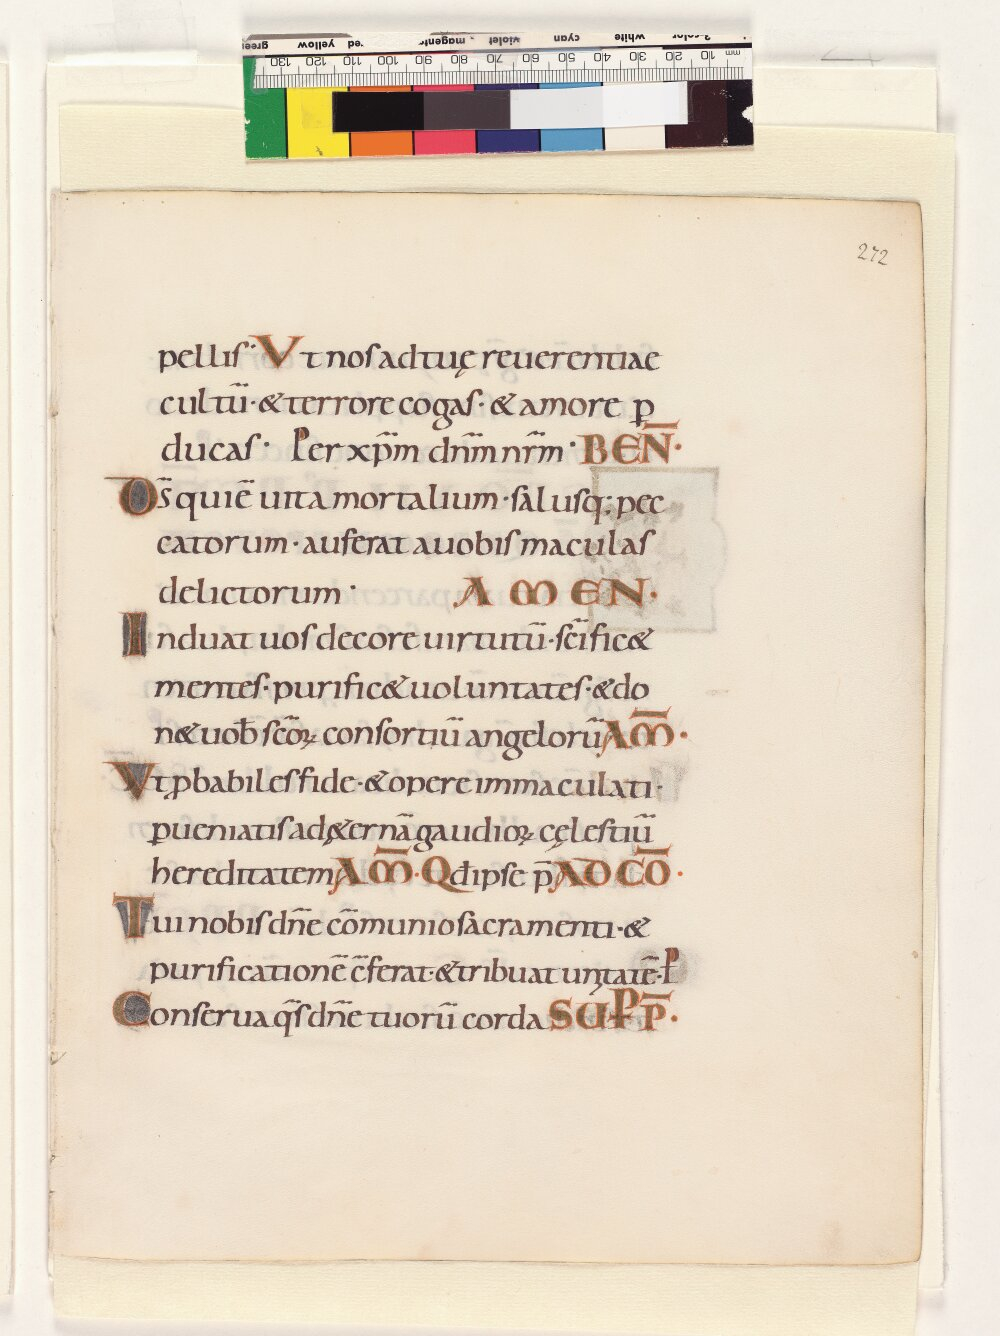 green yellow red magenta violet cyan white 3-color
130 120 110 100 90 80 70 60 50 40 30 20 10 mm
272
pelliſ· Vt noſ ad tuę reuerentiae
cultū· & terrore cogaſ· & amore ꝑ
ducaſ· Per xp̄m dn̄m nr̄m· BEN̄·
Ds̄ qui ē uita mortalium· ſaluſq; pec
catorum· auferat a uobiſ maculaſ
delictorum· AMEN·
Induat uoſ decore uirtutū· ſc̄ific&
menteſ· purific& uoluntateſ· & do
n& uob̄ ſc̄oꝝ conſortiū angelorū AM̄·
Vt ꝓbabileſ fide· & opere immaculati·
ꝑueniatiſ ad &ernā gaudioꝝ cęleſtiū
hereditatem AM̄· Qd̄ ipſe p̄ AD CŌ·
Tui nobiſ dn̄e cōmunio ſacramenti· &
purificationē c̄ferat· & tribuat unitatē· P
Conſerua qſ̄ dn̄e tuorū corda SUP P̄·